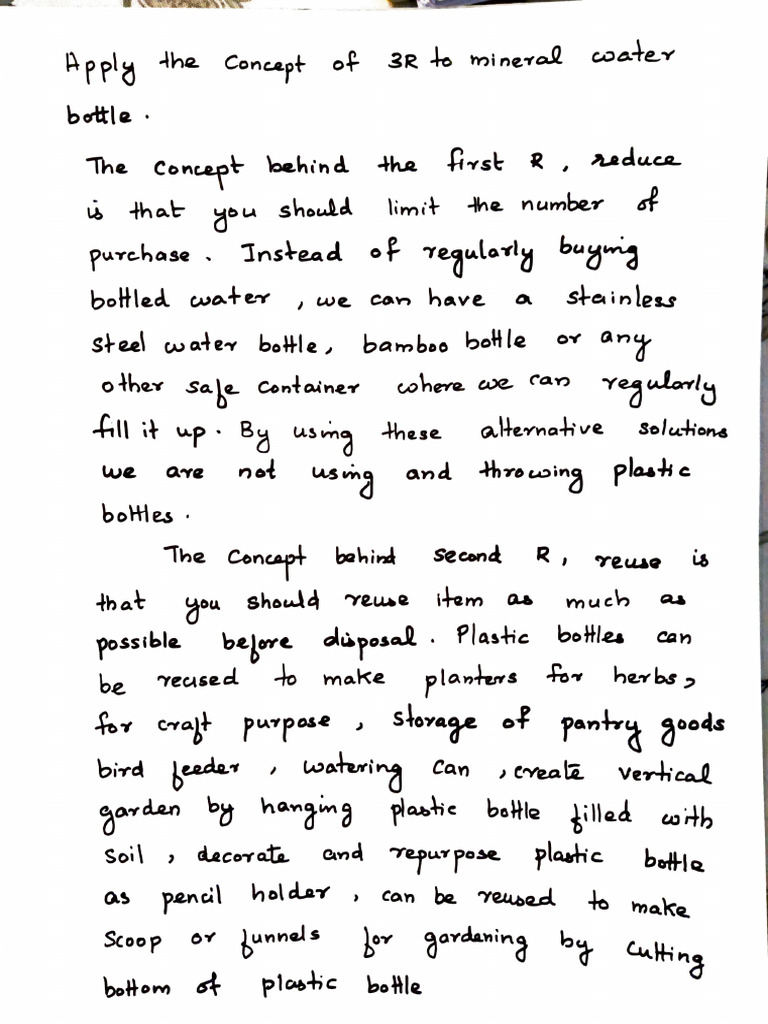 Apply the Concept of 3R to mineral water
bottle.
The Concept behind the first R, reduce
is that you should limit the number of
purchase. Instead of regularly buying
bottled water, we can have a stainless
steel water bottle, bamboo bottle or any
other safe container where we can regularly
fill it up. By using these alternative solutions
we are not using and throwing plastic
bottles.
The Concept behind second R, reuse is
that you should reuse item as much as
possible before disposal. Plastic bottles can
be reused to make planters for herbs,
for craft purpose, storage of pantry goods
bird feeder, watering can, create vertical
garden by hanging plastic bottle filled with
soil, decorate and repurpose plastic bottle
as pencil holder, can be reused to make
scoop or funnels for gardening by cutting
bottom of plastic bottle